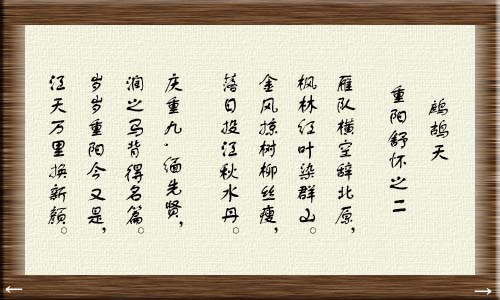 鹧鸪天
重阳舒怀之二
雁队横空辞北原，
枫林红叶染群山。
金风掠树柳丝瘦，
落日投江秋水丹。
庆重九·缅先贤，
润之马背得名篇。
岁岁重阳今又是，
江天万里换新颜。